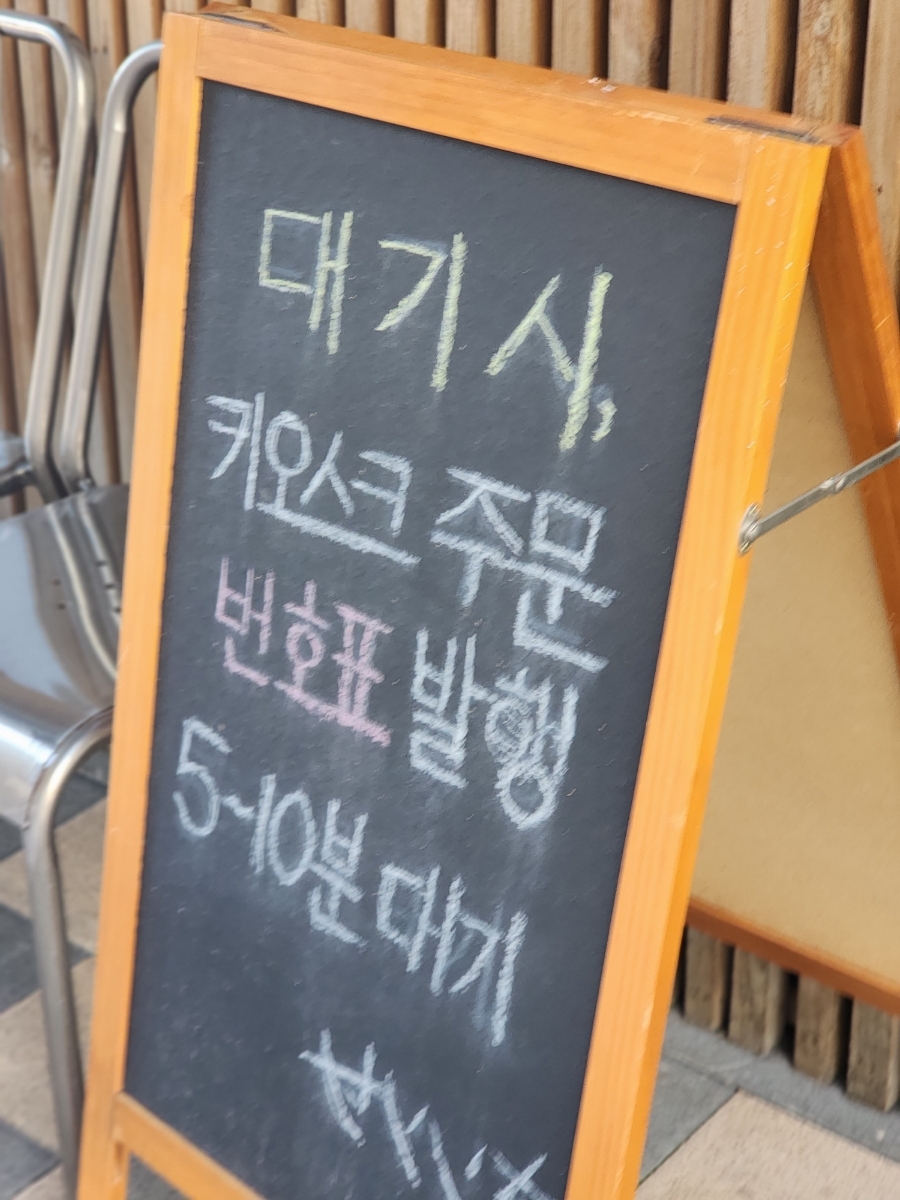 대기 시,
키오스크 주문
번호표 발행
5~10분 대기